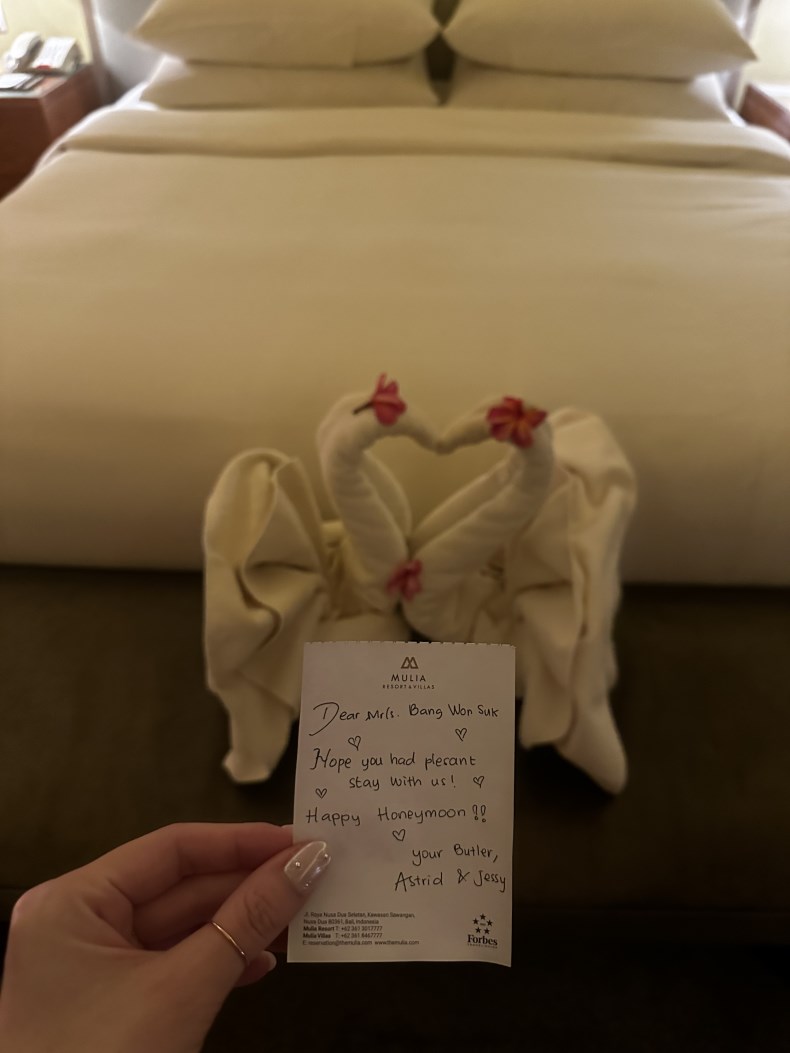 MULIA
RESORT & VILLAS
Dear Mr/s. Bang Won Suk
Hope you had plesant
stay with us!
Happy Honeymoon !!
your Butler,
Astrid & Jessy
Jl. Raya Nusa Dua Selatan, Kawasan Sawangan,
Nusa Dua 80361, Bali, Indonesia
Mulia Resort T: +62 361 3017777
Mulia Villas T: +62 361 8467777
E: reservation@themulia.com www.themulia.com
Forbes